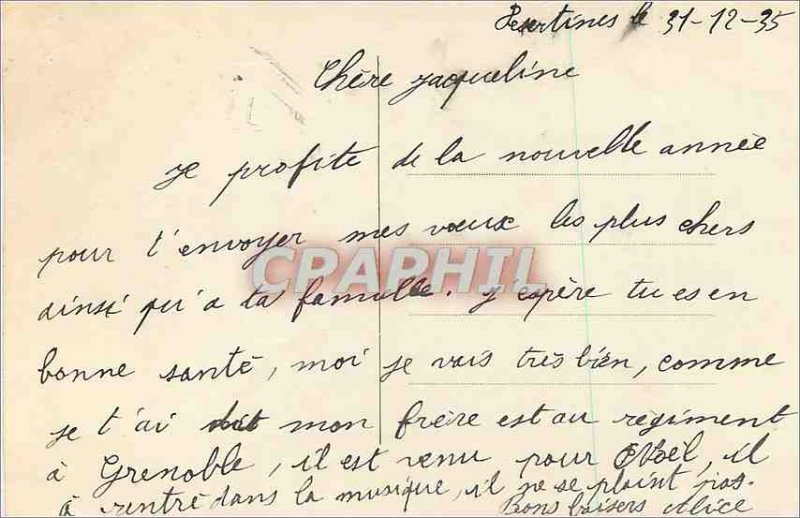 le 31-12-35
Chère Jaqueline
Je profite de la nouvelle année
pour t'envoyer mes vœux les plus chers
ainsi qu'a ta famille. J espère tu es en
bonne santé, moi je vais très bien, comme
je t'ai dit mon frère est au règiment
à Grenoble, il est venu pour Noël, il
à rentré dans la musique, il ne se plaint pas.
Bons baisers Alice
CPAPHIL